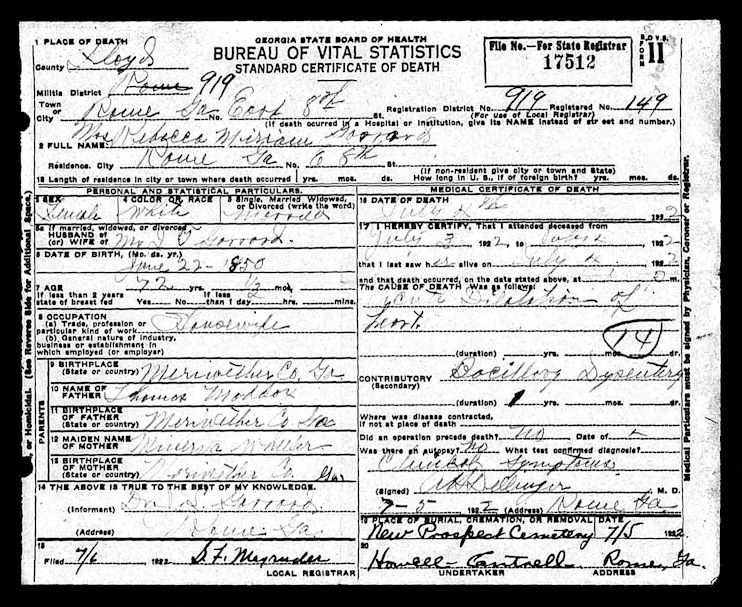 GEORGIA STATE BOARD OF HEALTH
BUREAU OF VITAL STATISTICS
STANDARD CERTIFICATE OF DEATH
File No.—For State Registrar
17512
B.O.V.S. FORM 11
1 PLACE OF DEATH
County Floyd
Militia District Rome 919
Town or City Rome Ga No. East 8th St. Registration District No. 919 Registered No. 149
(For use of Local Registrar)
(If death occurred in a Hospital or Institution, give its NAME instead of street and number.)
2 FULL NAME Mrs Rebecca Mirriam Garrard
Residence. City Rome Ga No. E 8th St.
(If non-resident give city or town and State)
18 Length of residence in city or town where death occurred yrs. mos. ds. How long in U. S., if of foreign birth? yrs. mos. ds.
PERSONAL AND STATISTICAL PARTICULARS.
3 SEX Female
4 COLOR OR RACE White
5 Single, Married, Widowed, or Divorced (write the word)
5a If married, widowed, or divorced
HUSBAND of
(or) WIFE of
6 DATE OF BIRTH, (Mo. da. yr.)
June 22 - 1850
7 AGE 72 yrs. mos. 12
If less than 2 years state of breast fed Yes— No— If less than 1 day hrs. min.
8 OCCUPATION
(a) Trade, profession or particular kind of work Housewife
(b) General nature of industry, business or establishment in which employed (or employer)
PARENTS
9 BIRTHPLACE (State or country) Meriwether Co. Ga
10 NAME OF FATHER Thomas Maddox
11 BIRTHPLACE OF FATHER (State or country) Meriwether Co Ga
12 MAIDEN NAME OF MOTHER Minerva
13 BIRTHPLACE OF MOTHER (State or country) Meriwether Co Ga.
14 THE ABOVE IS TRUE TO THE BEST OF MY KNOWLEDGE.
(Informant)
(Address) Rome Ga.
15
Filed 7/6 1922 S. F. Magruder
LOCAL REGISTRAR
MEDICAL CERTIFICATE OF DEATH
16 DATE OF DEATH
July 4th 1922
17 I HEREBY CERTIFY, That I attended deceased from
July 3 1922 to 1922
that I last saw her alive on July 4 1922
and that death occurred, on the date stated above, at m.
The CAUSE OF DEATH Was as follows:
Acute Dilatation of
Heart
14
(duration) yrs. mos. ds.
CONTRIBUTORY (Secondary) Bacillary Dysentery
(duration) 1 yrs. mos. ds.
Where was disease contracted, if not at place of death
Did an operation precede death? No Date of
Was there an autopsy? No What test confirmed diagnosis?
Clinical Symptoms
(Signed) Dellinger M. D.
7-5 1922 (Address) Rome Ga
19 PLACE OF BURIAL, CREMATION, OR REMOVAL DATE
New Prospect Cemetery 7/5 1922
20
Howell - Cantrell Rome, Ga.
UNDERTAKER ADDRESS
or Homicidal. (See Reverse Side for Additional Space.)
Medical Particulars must be signed by Physician, Coroner or Registrar.